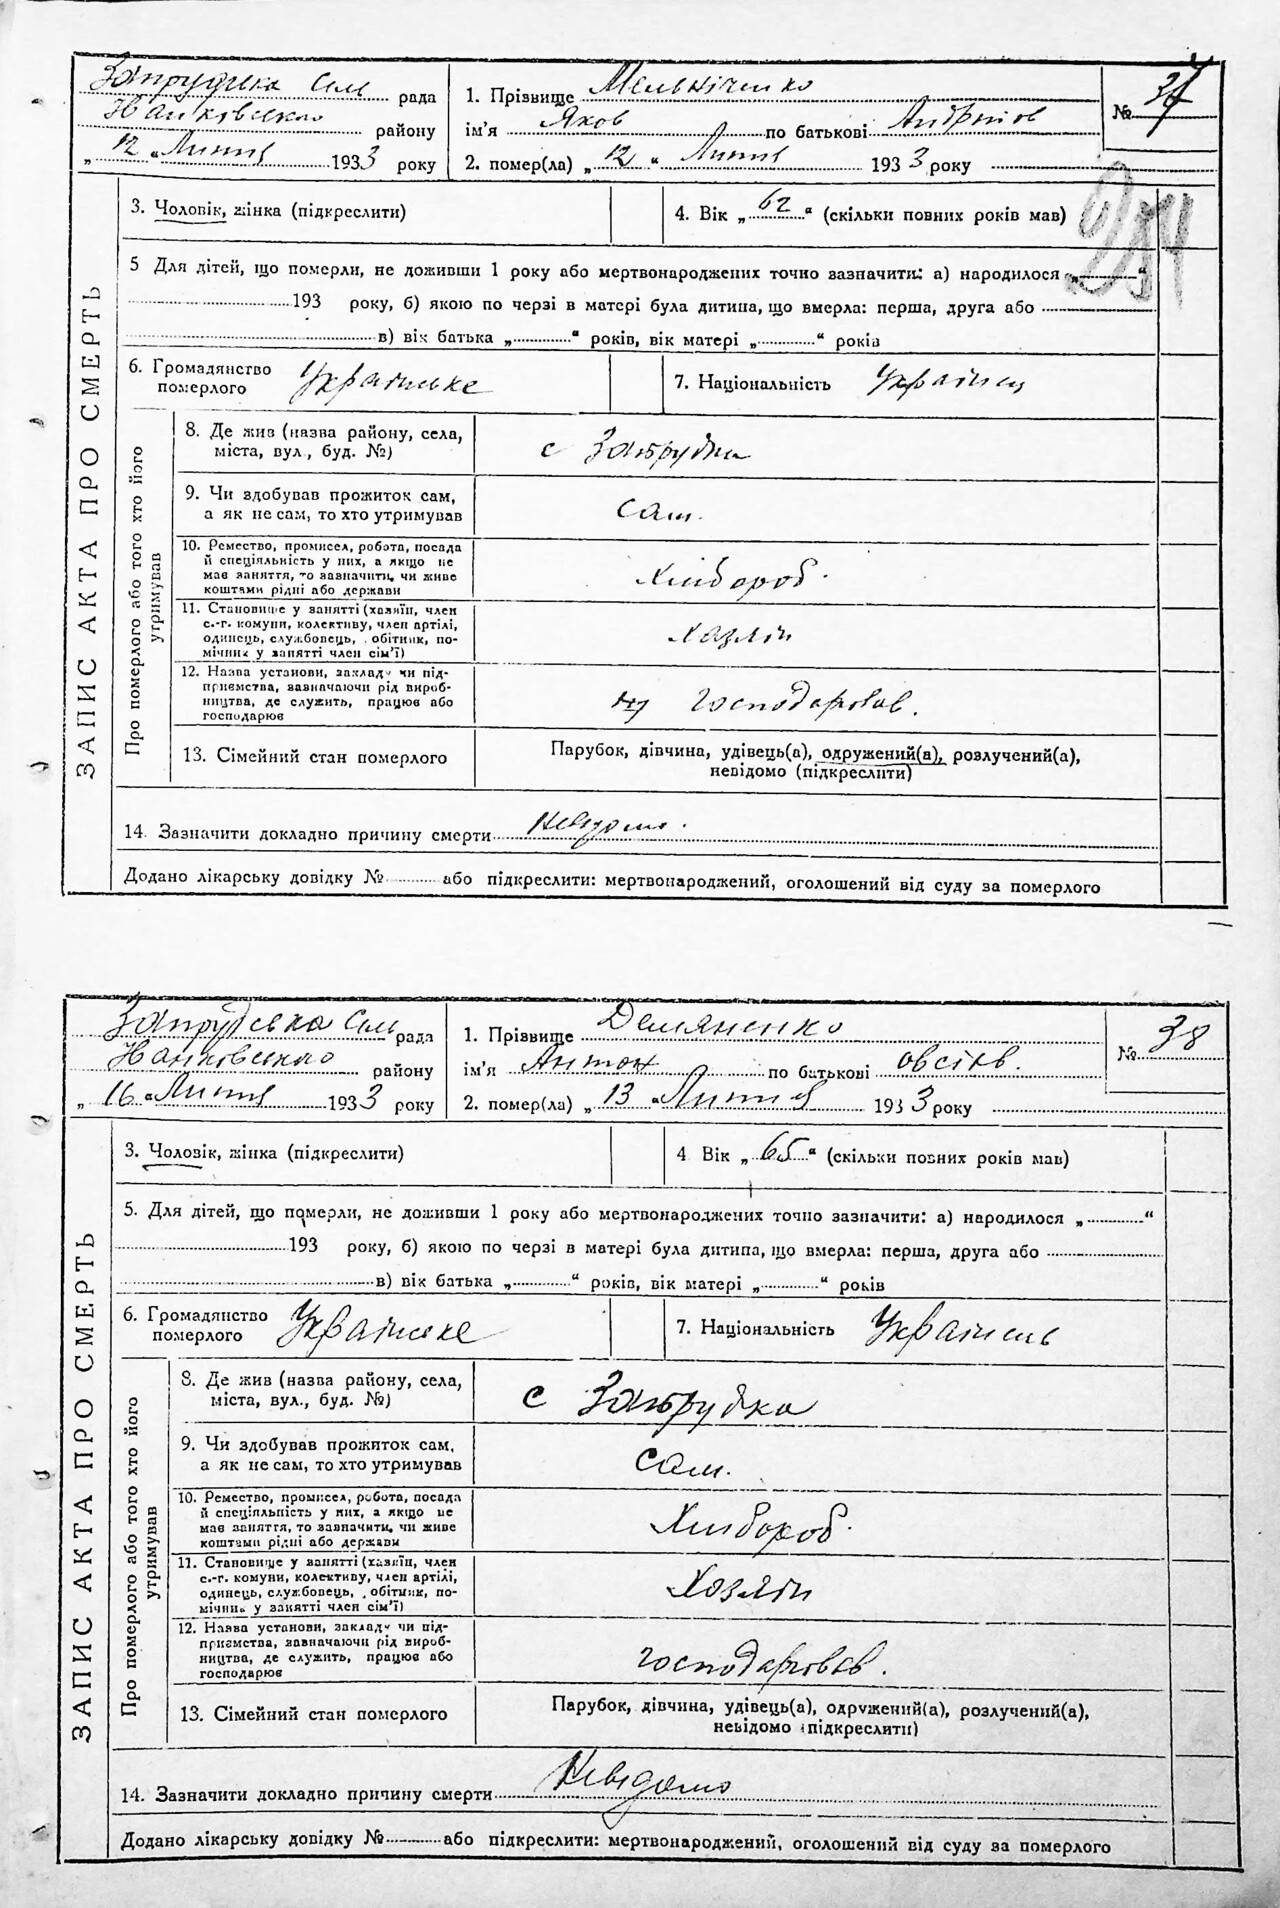 Запрудська Сель рада
Нанковського району
„12“ Липня 1933 року
1. Прізвище Мельніченко
ім'я Яков по батькові Андріїов
2. помер(ла) „12“ Липня 1933 року
№ 37
204
ЗАПИС АКТА ПРО СМЕРТЬ
3. Чоловік, жінка (підкреслити)
4. Вік „62“ (скільки повних років мав)
5 Для дітей, що померли, не доживши 1 року або мертвонароджених точно зазначити: а) народилося „ “
193 року, б) якою по черзі в матері була дитина, що вмерла: перша, друга або
в) вік батька „ “ років, вік матері „ “ років
6. Громадянство
померлого Українське
7. Національність Українец
Про померлого або того хто його
утримував
8. Де жив (назва району, села,
міста, вул., буд. №)
с Запрудка
9. Чи здобував прожиток сам,
а як не сам, то хто утримував
сам.
10. Ремество, промисел, робота, посада
й спеціяльність у них, а якщо не
має заняття, то зазначити, чи живе
коштами рідні або держави
Хлібороб.
11. Становище у занятті (хазяїн, член
с.-г. комуни, колективу, член артілі,
одинець, службовець, робітник, по-
мічник у занятті член сім'ї)
Хазяін
12. Назва установи, закладу чи під-
приємства, зазначаючи рід вироб-
ництва, де служить, працює або
господарює
господарював.
13. Сімейний стан померлого
Парубок, дівчина, удівець(а), одружений(а), розлучений(а),
невідомо (підкреслити)
14. Зазначити докладно причину смерти невідомо.
Додано лікарську довідку № або підкреслити: мертвонароджений, оголошений від суду за померлого
Запрудська Сель рада
Нанковського району
„16“ Липня 1933 року
1. Прізвище Демяненко
ім'я Антон по батькові Овсіїв.
2. помер(ла) „13“ Липня 1933 року
№ 38
ЗАПИС АКТА ПРО СМЕРТЬ
3. Чоловік, жінка (підкреслити)
4 Вік „65“ (скільки повних років мав)
5. Для дітей, що померли, не доживши 1 року або мертвонароджених точно зазначити: а) народилося „ “
193 року, б) якою по черзі в матері була дитина, що вмерла: перша, друга або
в) вік батька „ “ років, вік матері „ “ років
6. Громадянство
померлого Українське
7. Національність Українець
Про померлого або того хто його
утримував
8. Де жив (назва району, села,
міста, вул., буд. №)
с Запрудка
9. Чи здобував прожиток сам,
а як не сам, то хто утримував
сам.
10. Ремество, промисел, робота, посада
й спеціяльність у них, а якщо не
має заняття, то зазначити, чи живе
коштами рідні або держави
Хлібороб.
11. Становище у занятті (хазяїн, член
с.-г. комуни, колективу, член артілі,
одинець, службовець, робітник, по-
мічник у занятті член сім'ї)
Хозяін
12. Назва установи, закладу чи під-
приємства, зазначаючи рід вироб-
ництва, де служить, працює або
господарює
господарював.
13. Сімейний стан померлого
Парубок, дівчина, удівець(а), одружений(а), розлучений(а),
невідомо (підкреслити)
14. Зазначити докладно причину смерти Невідомо
Додано лікарську довідку № або підкреслити: мертвонароджений, оголошений від суду за померлого